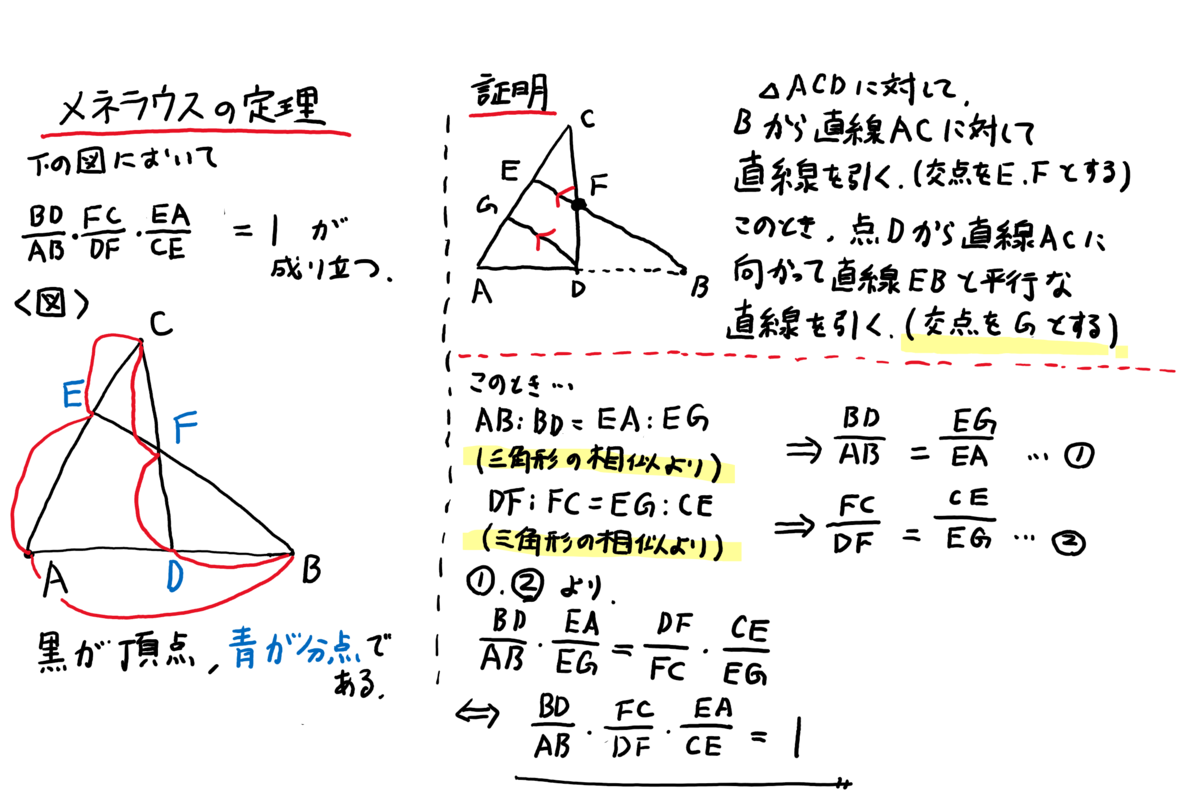 メネラウスの定理
下の図において
BD/AB・FC/DF・EA/CE = 1 が
成り立つ.
<図>
C
E
F
A
D
B
黒が頂点, 青が分点で
ある.
証明
C
E
F
G
A
D
B
△ACDに対して,
Bから直線ACに対して
直線を引く.(交点をE.Fとする)
このとき, 点Dから直線ACに
向かって直線EBと平行な
直線を引く.(交点をGとする)
このとき…
AB:BD=EA:EG
(三角形の相似より)
⇒ BD/AB = EG/EA … ①
DF:FC=EG:CE
(三角形の相似より)
⇒ FC/DF = CE/EG … ②
①.②より.
BD/AB・EA/EG = DF/FC・CE/EG
⇔ BD/AB・FC/DF・EA/CE = 1